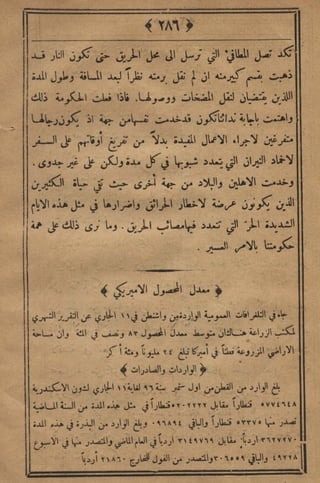 ﴿ ٢٨٦ ﴾
تكد تصل المطافئ التي ترسل الى محل الحريق حتى تكون النار قد
ذهبت بقسم كبير منه ان لم نقل برمته نظراً لبعد المسافة وطول المدة
اللذين يقتضيان لنقل المضخات ووصولها. فاذا فعلت الحكومة ذلك
واهتمت باجابة ندائنا تكون قد خدمت نفسها من جهة اذ يكون رجالها
متفرغين لاجراء الاعمال المفيدة بدلاً من تفريغ أوقاتهم على السفر
لاخماد النيران التي يتعدد شبوبها في كل مدة ولكن على غير جدوى.
وخدمت الاهلين والبلاد من جهة أخرى حيث تقي حياة الكثيرين
الذين يكونون عرضة لاخطار الحرائق واضرارها في مثل هذه الايام
الشديدة الحر التي تتعدد فيها مصائب الحريق. وما نرى ذلك على همة
حكومتنا بالامر العسير.
﴿ معدل المحصول الاميريكي ﴾
جاء في التلغرافات العمومية الواردة من واشنطن في ١١ الجاري عن التقرير الشهري
لمكتب الزراعة هنالك أن متوسط معدل المحصول ٨٣ ونصف في المئة وان مساحة
الاراضي المزروعة قطناً في أميركا تبلغ ٢٤ مليوناً ومئة أكر
﴿ الواردات والصادرات ﴾
بلغ الوارد من القطن من اول ستمبر سنة ٩٦ لغاية ١١ الجاري لشون الاسكندرية
٥٧٧٤٦٤٨ قنطاراً مقابل ٥٢٠٢٢٢٢ قنطاراً في مثل هذه المدة من السنة الماضية
تصدر منها ٥٢٣٧٥ قنطاراً والباقي ٠٩٦٨٩٤ وبلغ الوارد من البذرة في هذه المدة
٣٦٢٧٢٧٠ اردباً: مقابل ٣١٤٩٧٦٩ اردباً في العام الماضي والمتصدر منها في الاسبوع
٤٩٢٢٨ والباقي ٣٠٦٥٥٩ والمتصدر من الفول للخارج ٢١٨٦٠ اردباً